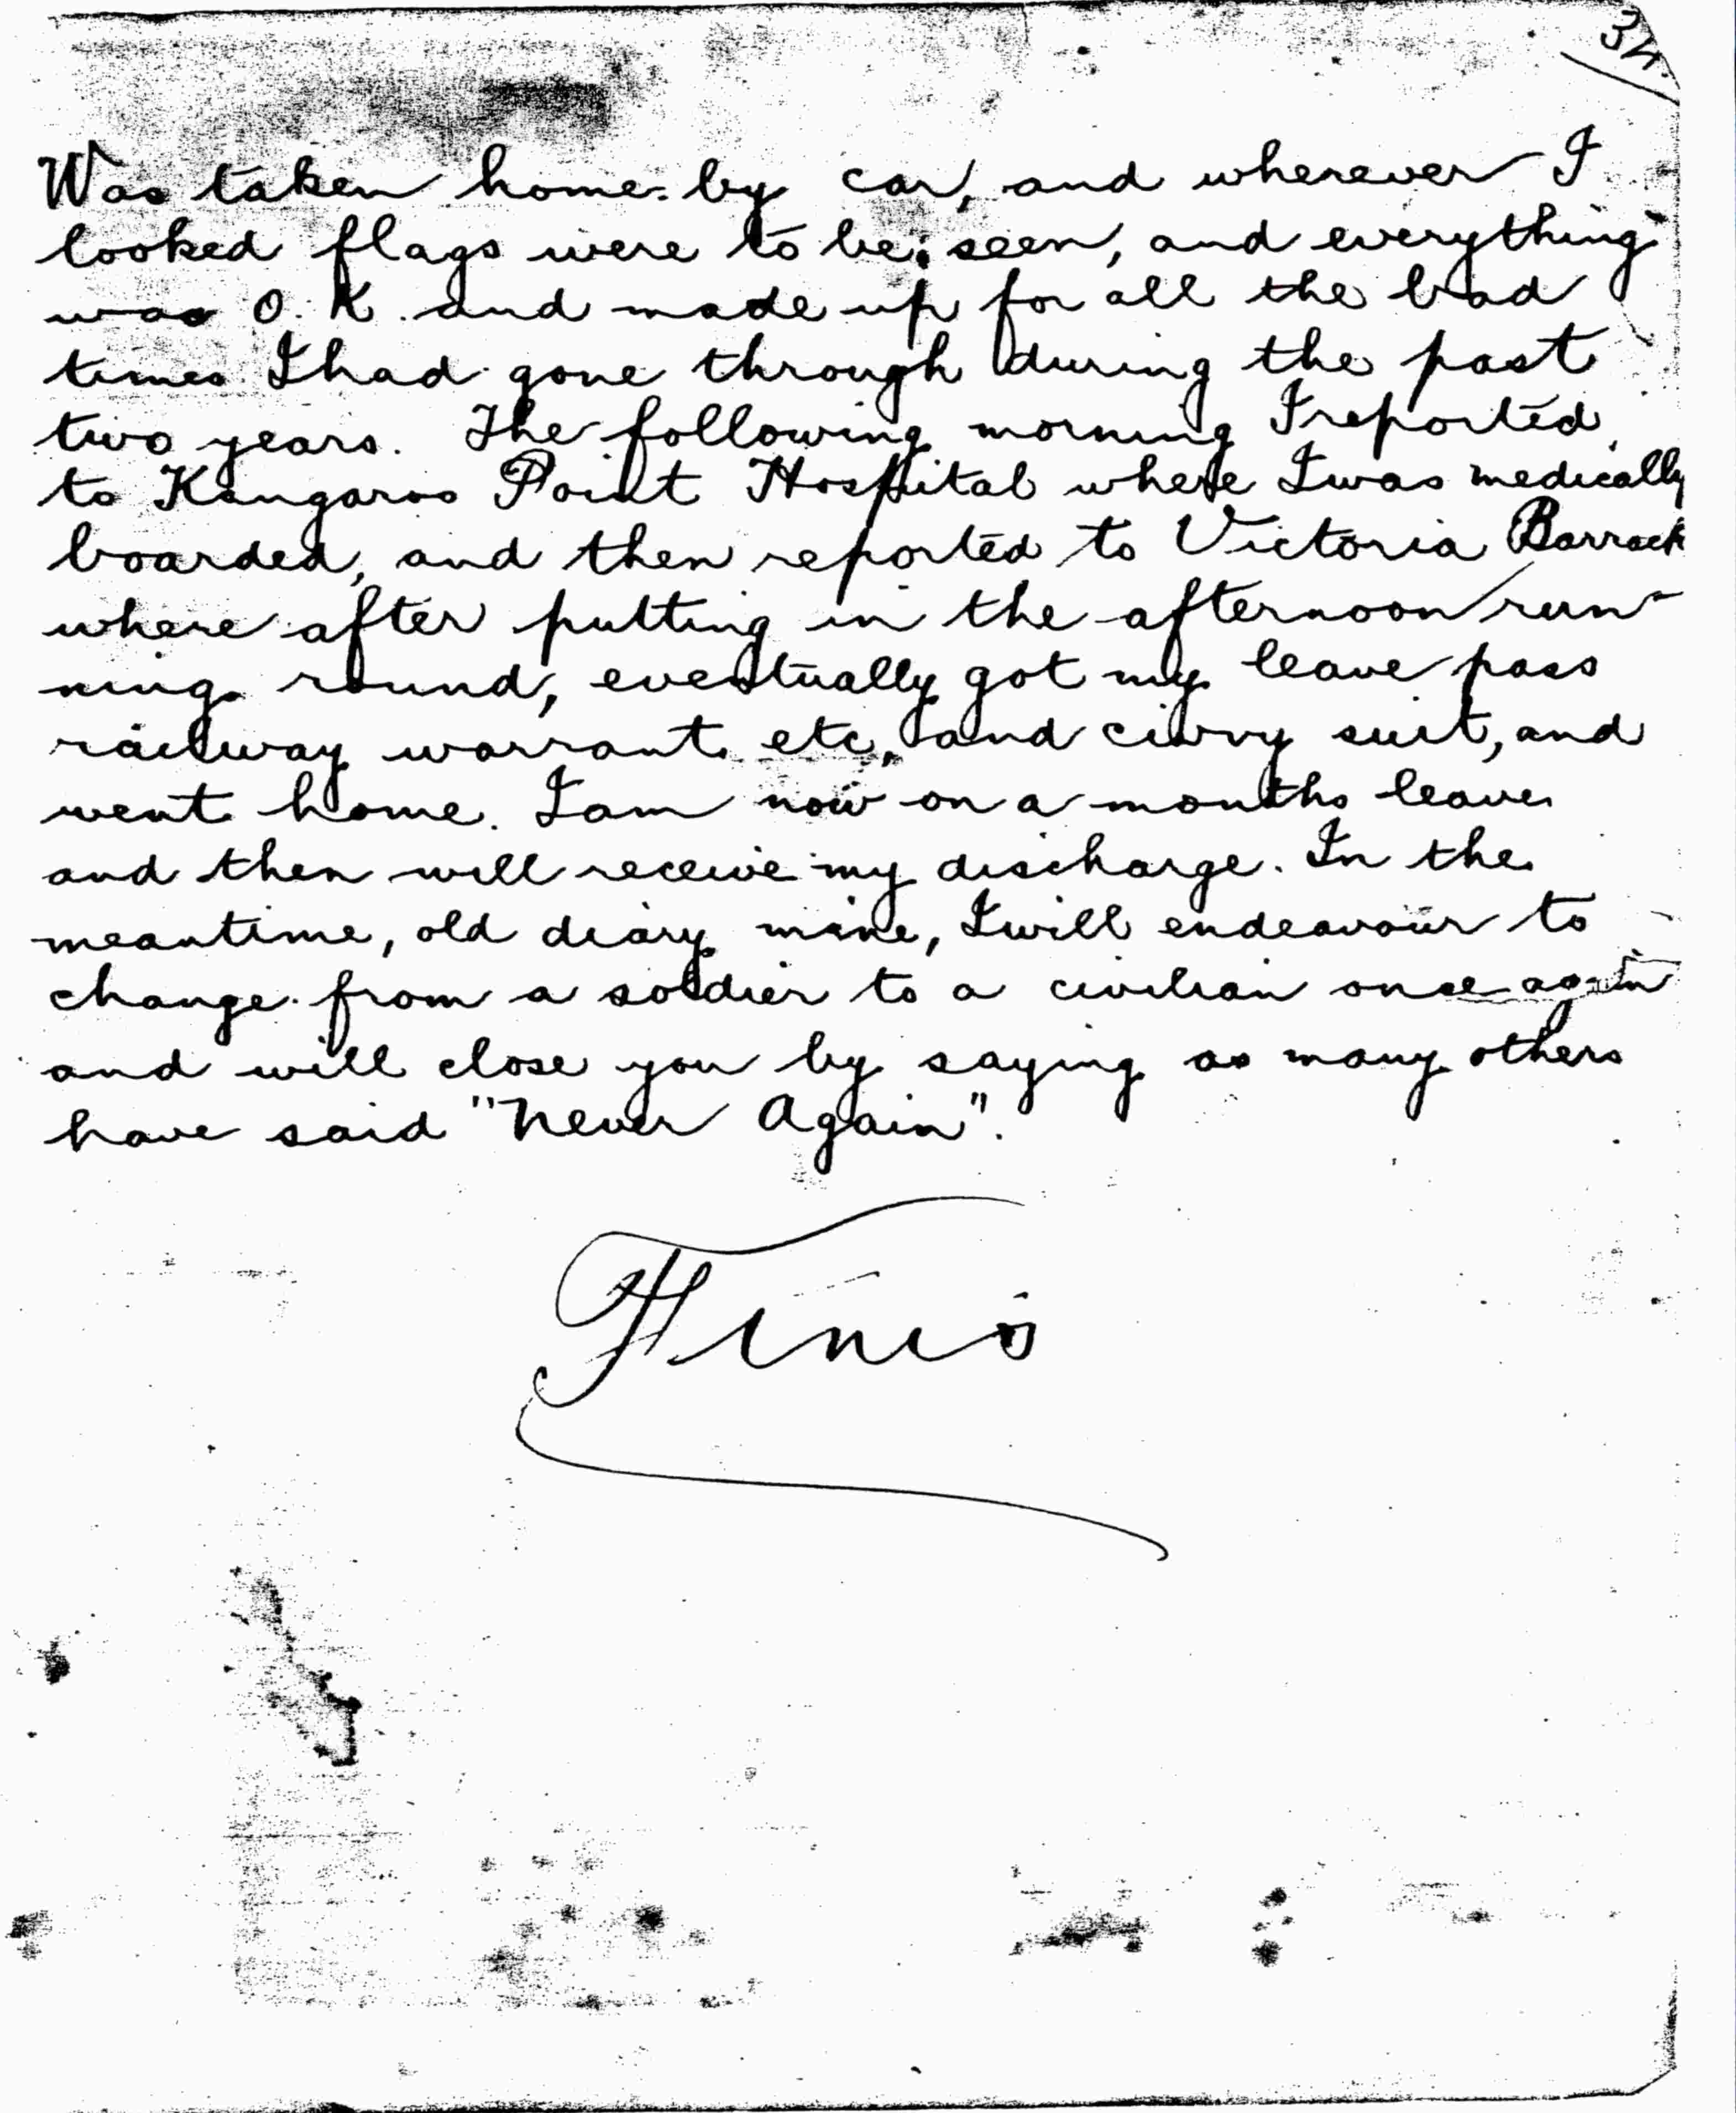 34.
Was taken home by car, and wherever I
looked flags were to be seen, and everything
was O.K. and made up for all the bad
times I had gone through during the past
two years. The following morning I reported
to Kangaroo Point Hospital where I was medically
boarded, and then reported to Victoria Barrack
where after putting in the afternoon run-
ning round, eventually got my leave pass
railway warrant etc, and civvy suit, and
went home. I am now on a months leave
and then will receive my discharge. In the
meantime, old diary mine, I will endeavour to
change from a soldier to a civilian once again
and will close you by saying as many others
have said "Never Again".
Finis